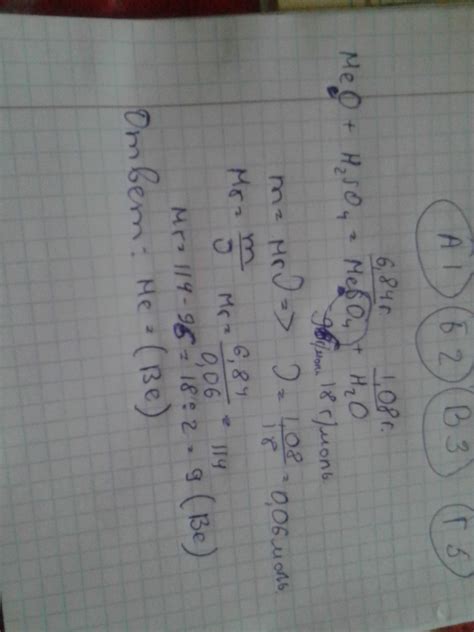 А1 Б2 В3 Г5
6,84г. 1,08г.
MeO + H₂SO₄ = MeSO₄ + H₂O
96г/моль 18 г/моль
m = Mr ν => ν = 1,08/18 = 0,06 моль
Mr = m/ν Mr = 6,84/0,06 = 114
Mr = 114 - 96 = 18 : 2 = 9 (Be)
Ответ: Me = (Be)